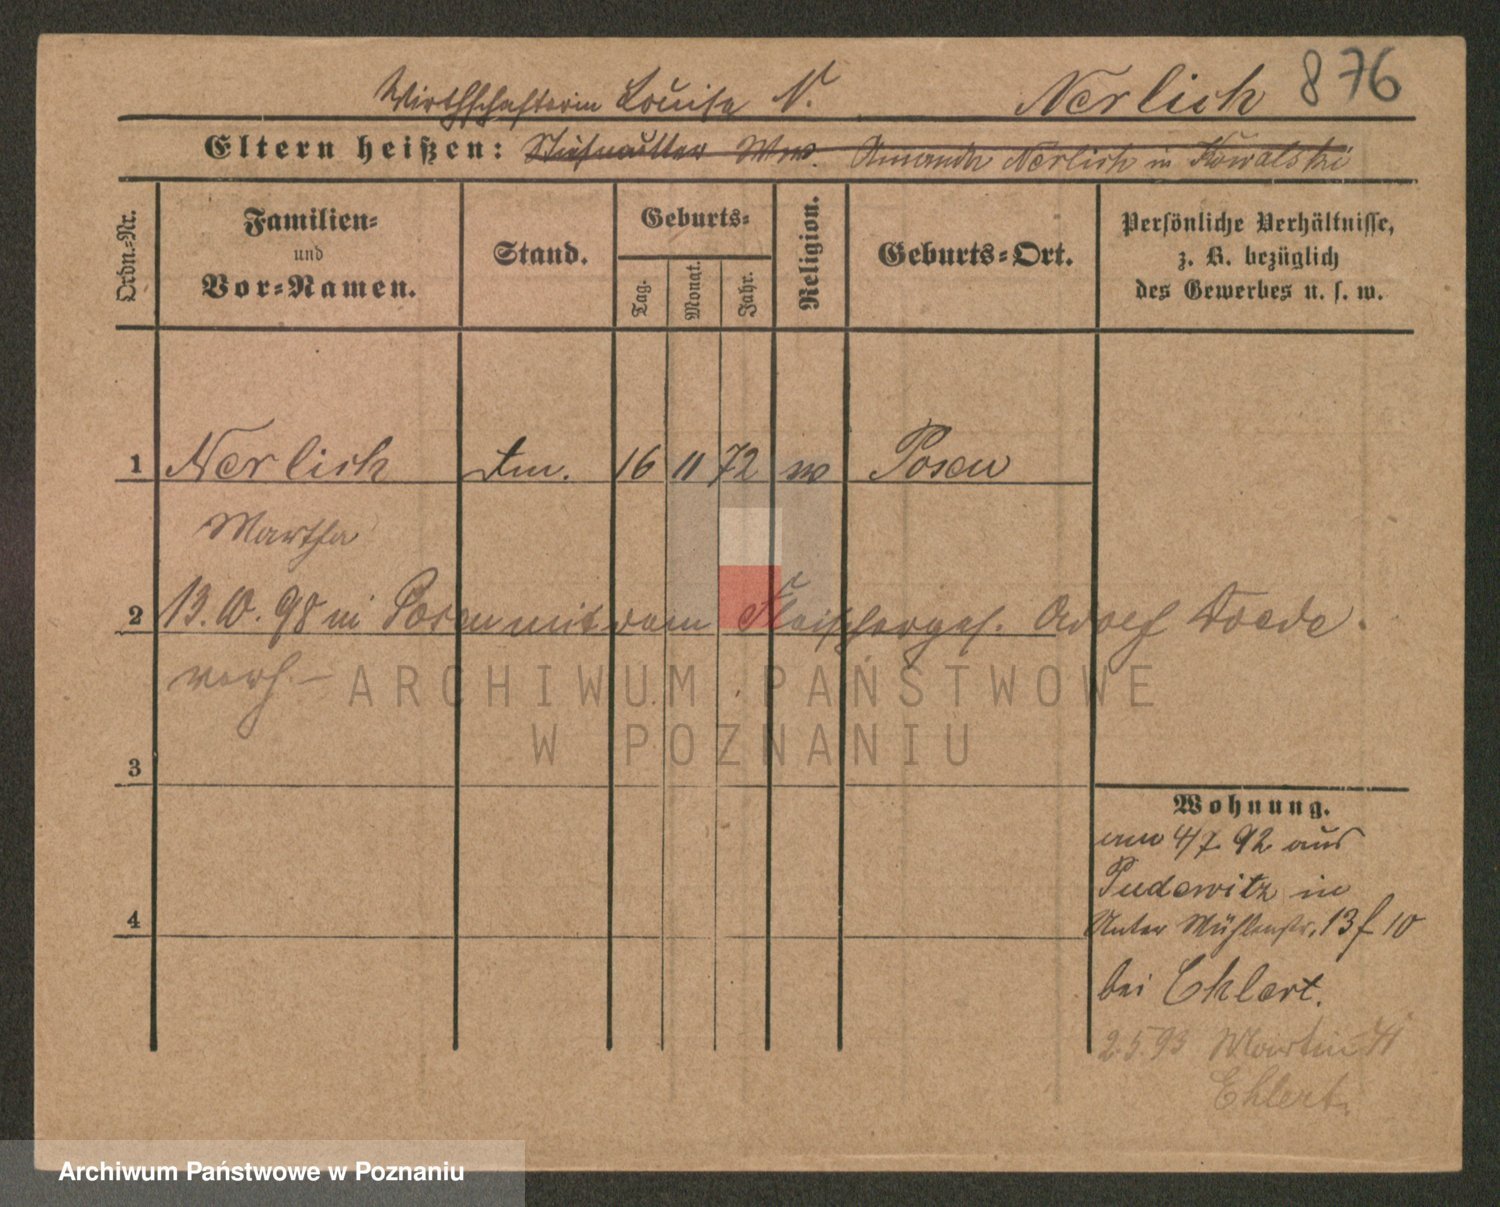 876
Wirthschafterin Louise N. Nerlich
Eltern heißen: Stiefmutter Ww. Amanda Nerlich in Kowalski
Ordn.-Nr.
Familien-
und
Vor-Namen.
Stand.
Geburts-
Tag.
Monat.
Jahr.
Religion.
Geburts-Ort.
Persönliche Verhältnisse,
z. B. bezüglich
des Gewerbes u. s. w.
1 Nerlich 16 11 72 Posen
Martha
2 13. 10. 98 in Posen mit dem Fleischerges. Adolf
verh. –
3
4
Wohnung.
am 4/7 92 aus
Pudewitz in
Unter Mühlenstr. 13 f 10
bei Ehlert.
2.5.93 Martin 41
Ehlert.
ARCHIWUM PAŃSTWOWE
W POZNANIU
Archiwum Państwowe w Poznaniu